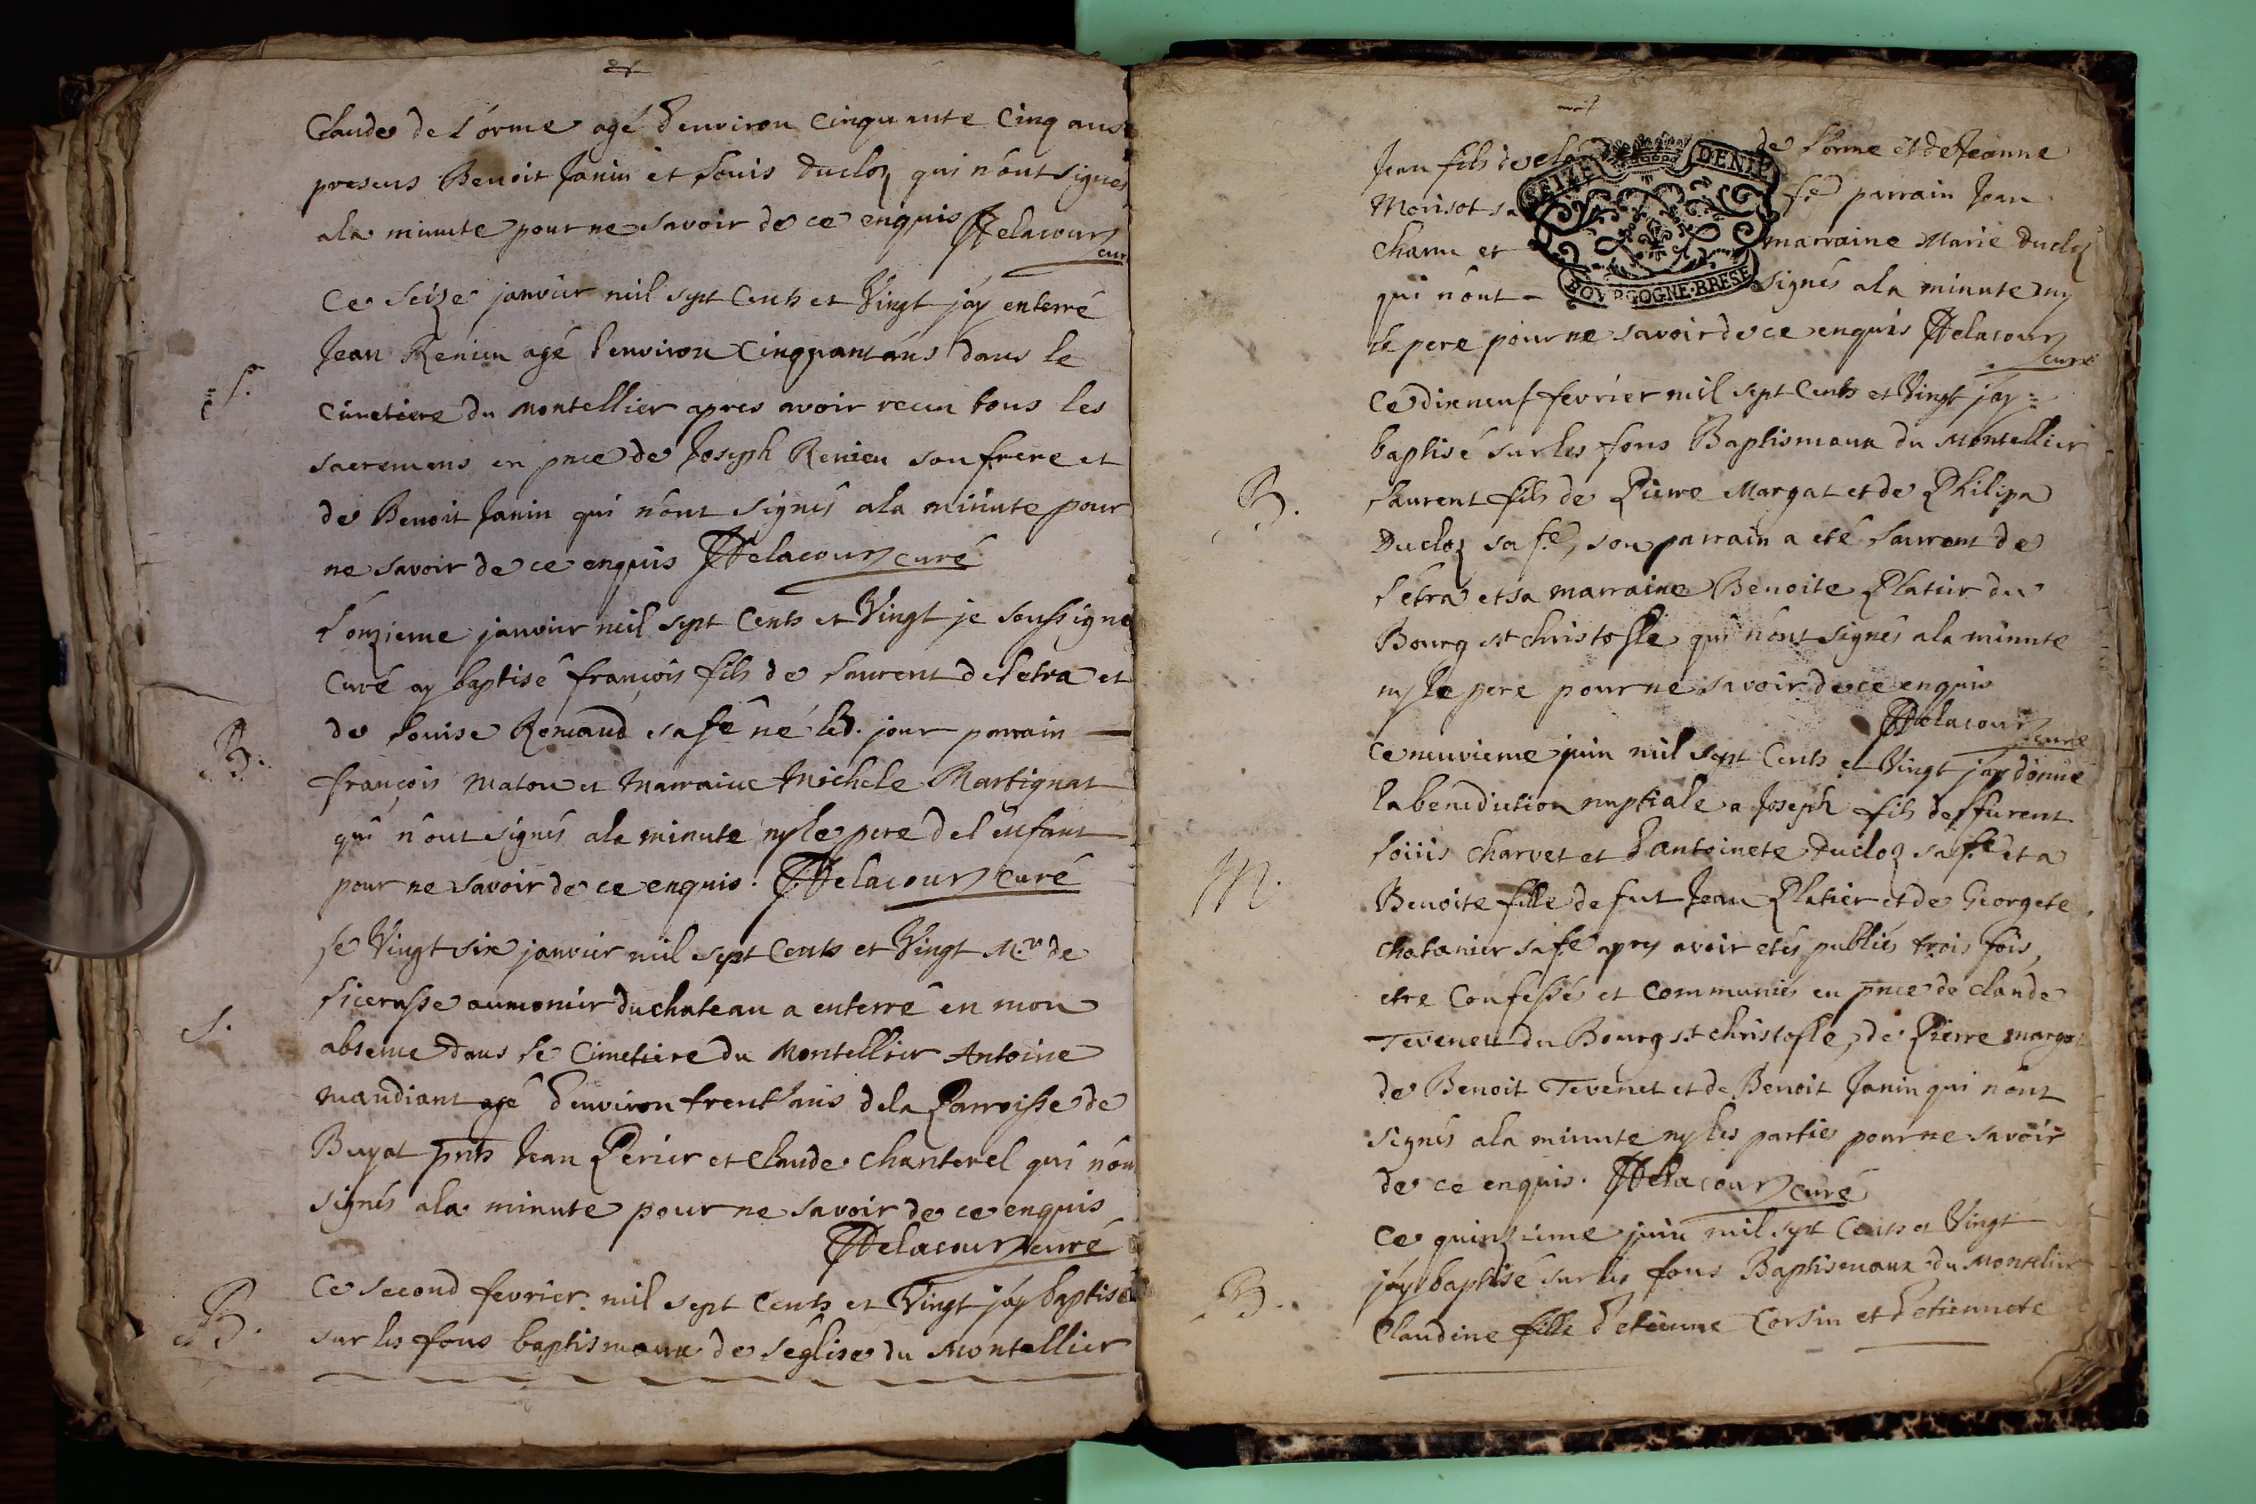 et
Claude de l'orme agé d'environ cinquante cinq ans
presens Benoit Janin et Louis Ducloz qui n'ont signés
a la minute pour ne savoir de ce enquis Delacour
curé
Ce seize janvier mil sept Cents et Vingt j'ay enterré
Jean Renieu agé d'environ Cinquant ans dans le
S.
cimetiere du Montellier apres avoir recu tous les
sacremens en pnce de Joseph Renieu son frere et
de Benoit Janin qui n'ont signés a la minute pour
ne savoir de ce enquis Delacour curé
L'onzieme janvier mil sept Cents et Vingt je soussigné
Curé ay baptisé françois fils de Laurent de Letra et
de Louise Renaud sa fe né led. jour parrain
B.
françois Maton et Marraine Michele Martignat
qui n'ont signés a la minute ny le pere de l'enfant
pour ne savoir de ce enquis. Delacour curé
Le Vingt six janvier mil sept Cents et Vingt Mr. de
Licerasse aumonier du chateau a enterré en mon
S.
absence dans le Cimetiere du Montellier Antoine
mandiant agé d'environ trent'ans de la Parroisse de
Buyat pnts Jean Perier et Claude Chanterel qui n'ont
signés a la minute pour ne savoir de ce enquis
Delacour curé
Ce second fevrier mil sept Cents et Vingt j'ay baptisé
B.
sur les fons baptismaux de l'eglise du Montellier
Jean fils de de l'orme et de Jeanne
Morisot sa fe parrain Jean
Charvi et marraine Marie Ducloz
qui n'ont signés a la minute ny
SEIZE DENIE
BOURGOGNE.BRESE
le pere pour ne savoir de ce enquis Delacour
curé
Ce dixneuf fevrier mil sept Cents et Vingt j'ay
baptisé sur les fons Baptismaux du Montellier
B.
Laurent fils de Pierre Margat et de Philipa
Ducloz sa fe, son parrain a eté Laurent de
Letra et sa marraine Benoite Platier du
Bourg st christofle qui n'ont signés a la minute
ny le pere pour ne savoir de ce enquis
Delacour curé
Ce neuvieme juin mil sept Cents et Vingt j'ay donné
la benediction nuptiale a Joseph fils de furent
Loüis Charvet et d'antoinete Ducloz sa fe et a
M.
Benoite fille de fut Jean Platier et de Georgete
Chatanier sa fe apres avoir etés publiés trois fois,
etre Confessés et communiés en pnce de Claude
Tevenet du Bourg st christofle, de Pierre margat
de Benoit Tevenet et de Benoit Janin qui n'ont
signés a la minute ny les parties pour ne savoir
de ce enquis. Delacour curé
Ce quinzieme juin mil sept Cents et Vingt
j'ay baptisé sur les fons Baptismaux du Montelier
B.
Claudine fille d'etienne Corsin et d'etiennete